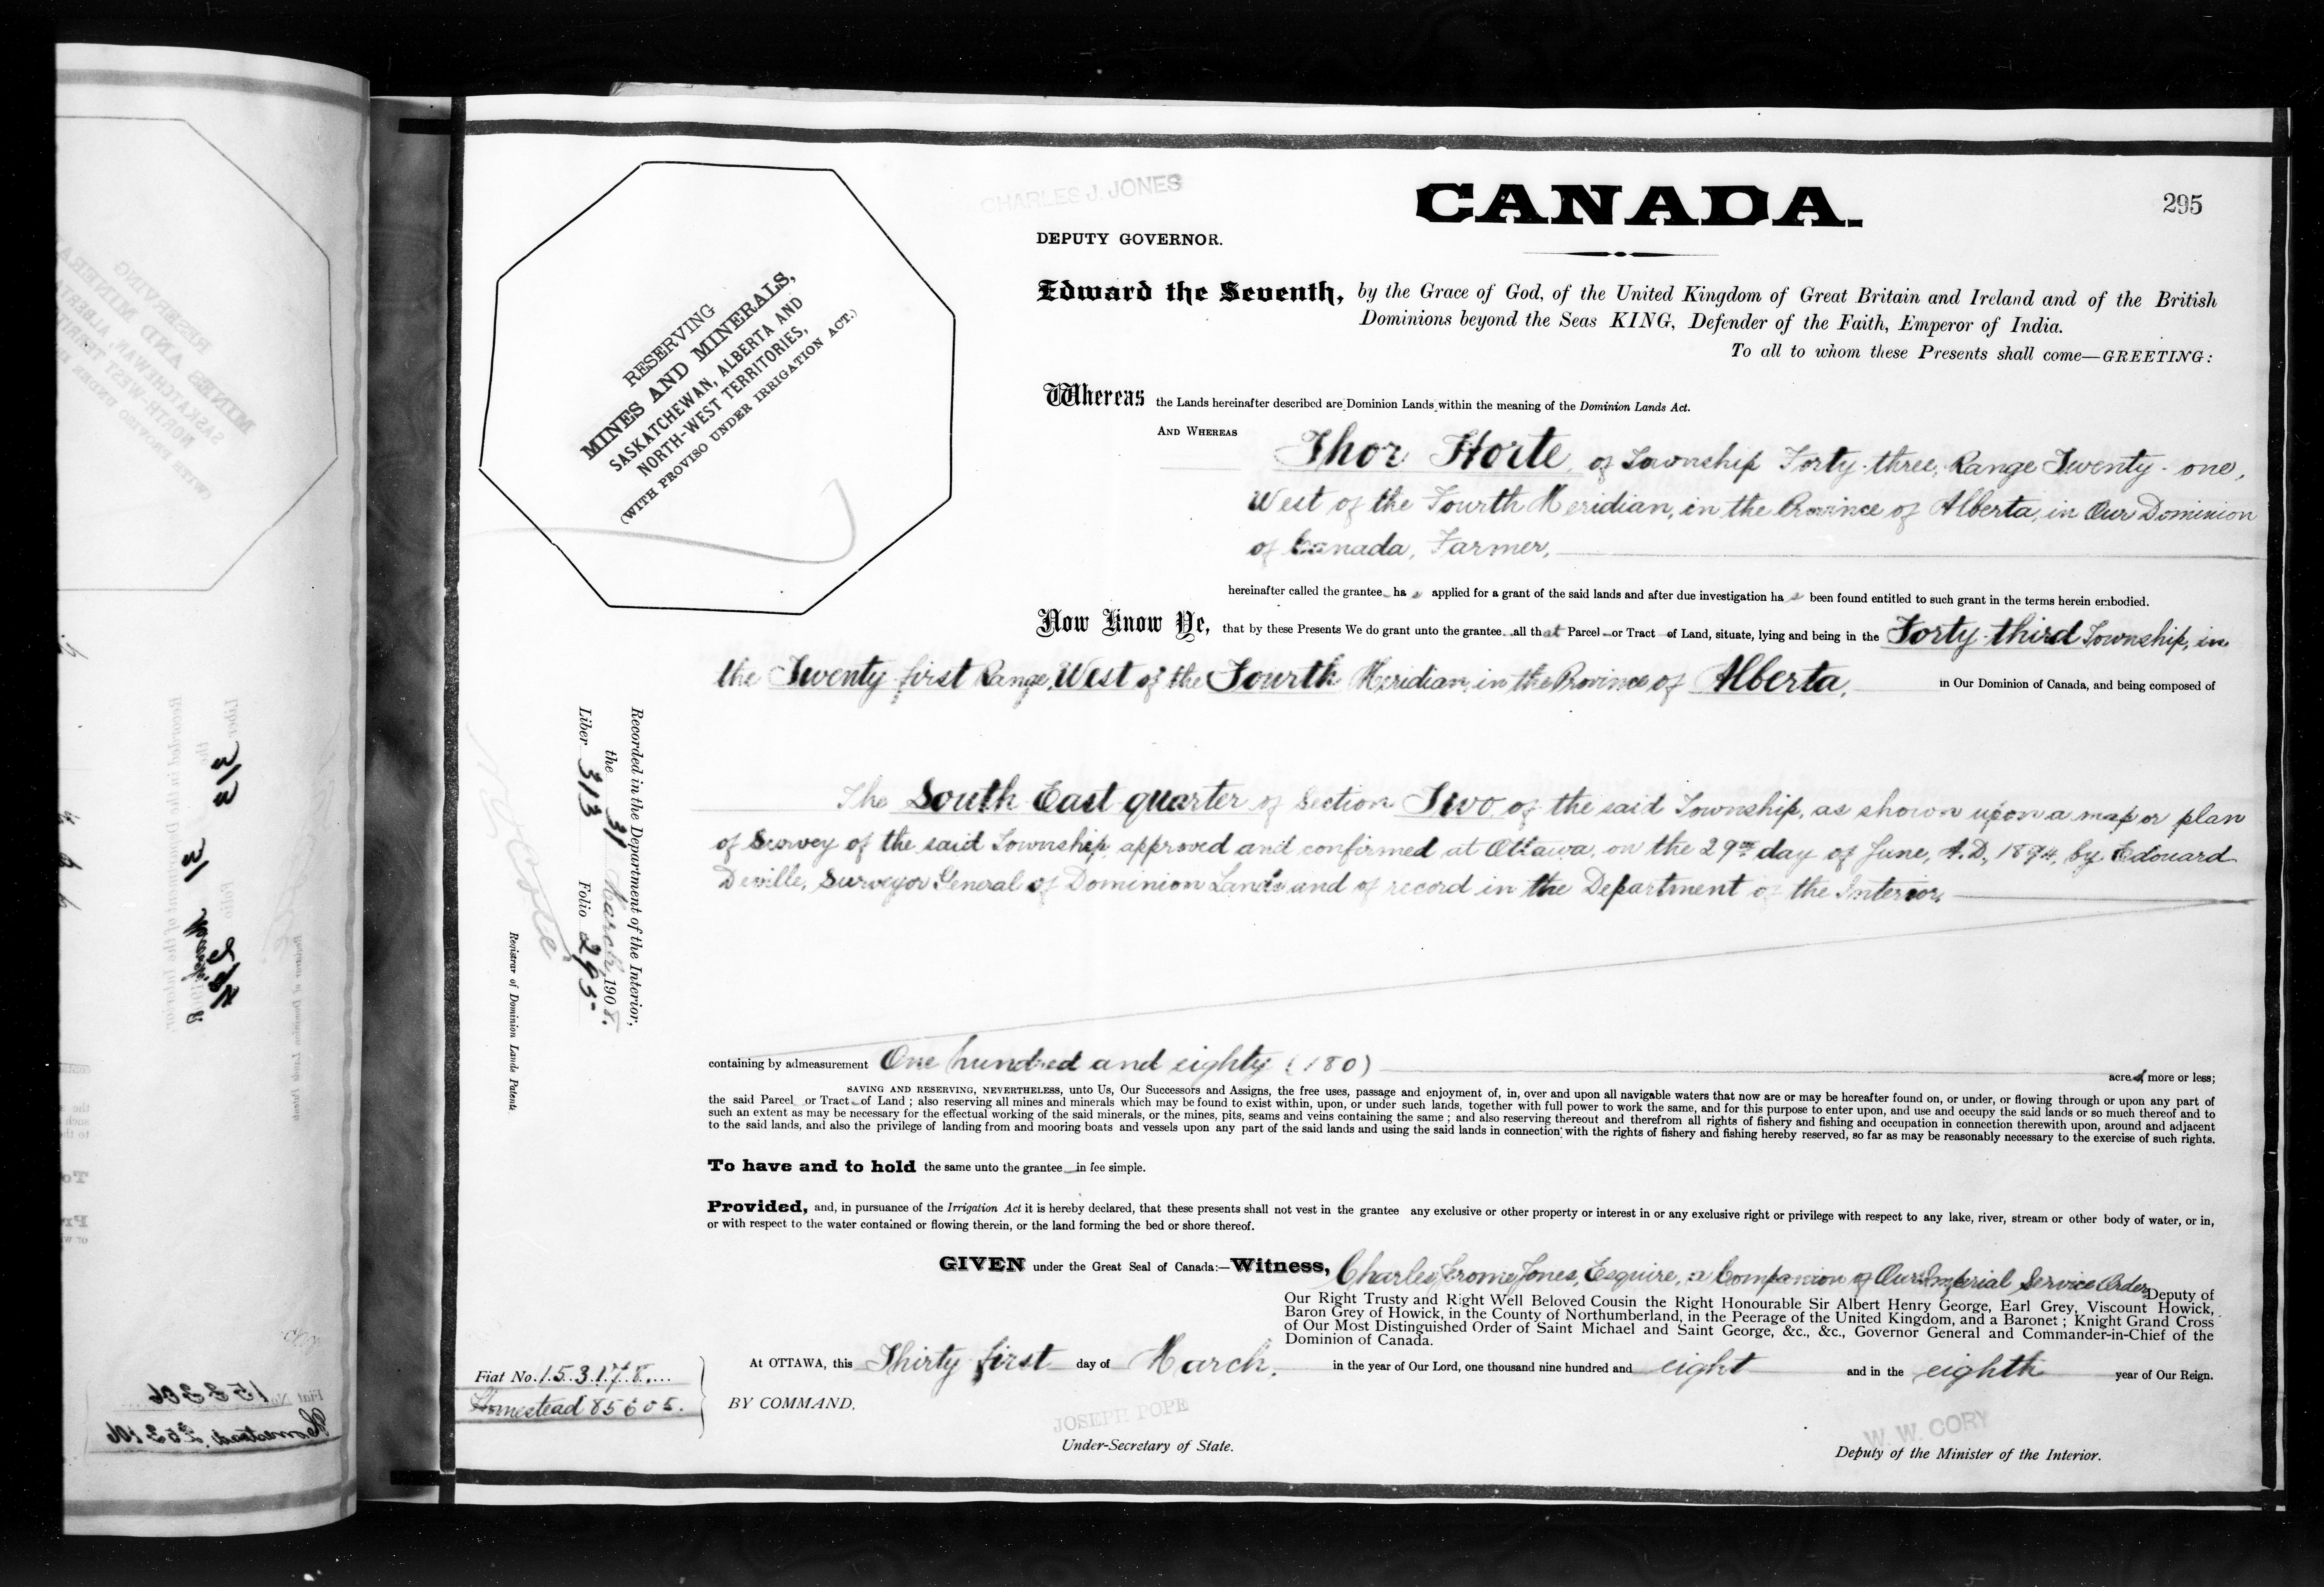 CHARLES J. JONES
CANADA.
295
DEPUTY GOVERNOR.
Edward the Seventh, by the Grace of God, of the United Kingdom of Great Britain and Ireland and of the British
Dominions beyond the Seas KING, Defender of the Faith, Emperor of India.
To all to whom these Presents shall come—GREETING:
RESERVING
MINES AND MINERALS,
SASKATCHEWAN, ALBERTA AND
NORTH-WEST TERRITORIES,
(WITH PROVISO UNDER IRRIGATION ACT.)
Whereas the Lands hereinafter described are Dominion Lands within the meaning of the Dominion Lands Act.
AND WHEREAS
Thor Horte, of Township Forty-three, Range Twenty-one,
West of the Fourth Meridian, in the Province of Alberta, in Our Dominion
of Canada, Farmer,
hereinafter called the grantee has applied for a grant of the said lands and after due investigation has been found entitled to such grant in the terms herein embodied.
Now Know Ye, that by these Presents We do grant unto the grantee all that Parcel or Tract of Land, situate, lying and being in the Forty-third Township, in
the Twenty-first Range, West of the Fourth Meridian, in the Province of Alberta, in Our Dominion of Canada, and being composed of
The South East quarter of Section Two of the said Township, as shown upon a map or plan
of Survey of the said Township approved and confirmed at Ottawa, on the 29th day of June, A.D. 1894, by Edouard
Deville, Surveyor General of Dominion Lands and of record in the Department of the Interior,
Recorded in the Department of the Interior,
the 31 March, 1908.
Liber 313 Folio 295
Registrar of Dominion Lands Patents
containing by admeasurement One hundred and eighty (180) acres more or less;
SAVING AND RESERVING, NEVERTHELESS, unto Us, Our Successors and Assigns, the free uses, passage and enjoyment of, in, over and upon all navigable waters that now are or may be hereafter found on, or under, or flowing through or upon any part of
the said Parcel or Tract of Land; also reserving all mines and minerals which may be found to exist within, upon, or under such lands, together with full power to work the same, and for this purpose to enter upon, and use and occupy the said lands or so much thereof and to
such an extent as may be necessary for the effectual working of the said minerals, or the mines, pits, seams and veins containing the same; and also reserving thereout and therefrom all rights of fishery and fishing and occupation in connection therewith upon, around and adjacent
to the said lands, and also the privilege of landing from and mooring boats and vessels upon any part of the said lands and using the said lands in connection with the rights of fishery and fishing hereby reserved, so far as may be reasonably necessary to the exercise of such rights.
To have and to hold the same unto the grantee in fee simple.
Provided, and, in pursuance of the Irrigation Act it is hereby declared, that these presents shall not vest in the grantee any exclusive or other property or interest in or any exclusive right or privilege with respect to any lake, river, stream or other body of water, or in,
or with respect to the water contained or flowing therein, or the land forming the bed or shore thereof.
GIVEN under the Great Seal of Canada:—Witness, Charles Jerome Jones, Esquire, a Companion of Our Imperial Service Order, Deputy of
Our Right Trusty and Right Well Beloved Cousin the Right Honourable Sir Albert Henry George, Earl Grey, Viscount Howick,
Baron Grey of Howick, in the County of Northumberland, in the Peerage of the United Kingdom, and a Baronet; Knight Grand Cross
of Our Most Distinguished Order of Saint Michael and Saint George, &c., &c., Governor General and Commander-in-Chief of the
Dominion of Canada.
At OTTAWA, this Thirty first day of March, in the year of Our Lord, one thousand nine hundred and eight and in the eighth year of Our Reign.
Fiat No. 153178
Homestead 85605.
BY COMMAND,
JOSEPH POPE
Under-Secretary of State.
W. W. CORY
Deputy of the Minister of the Interior.